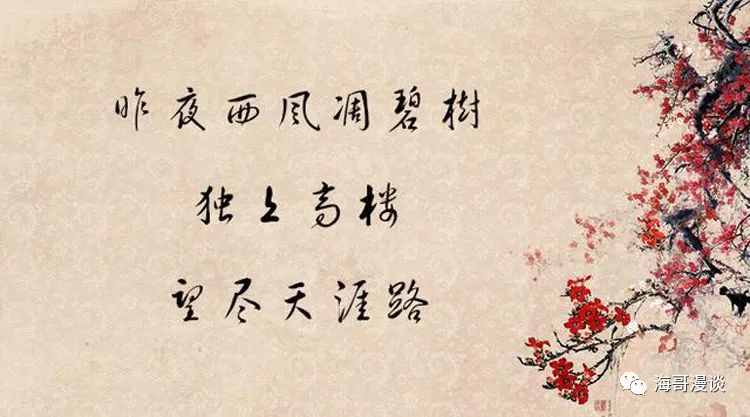 昨夜西风凋碧樹
独上高楼
望尽天涯路
海哥漫谈